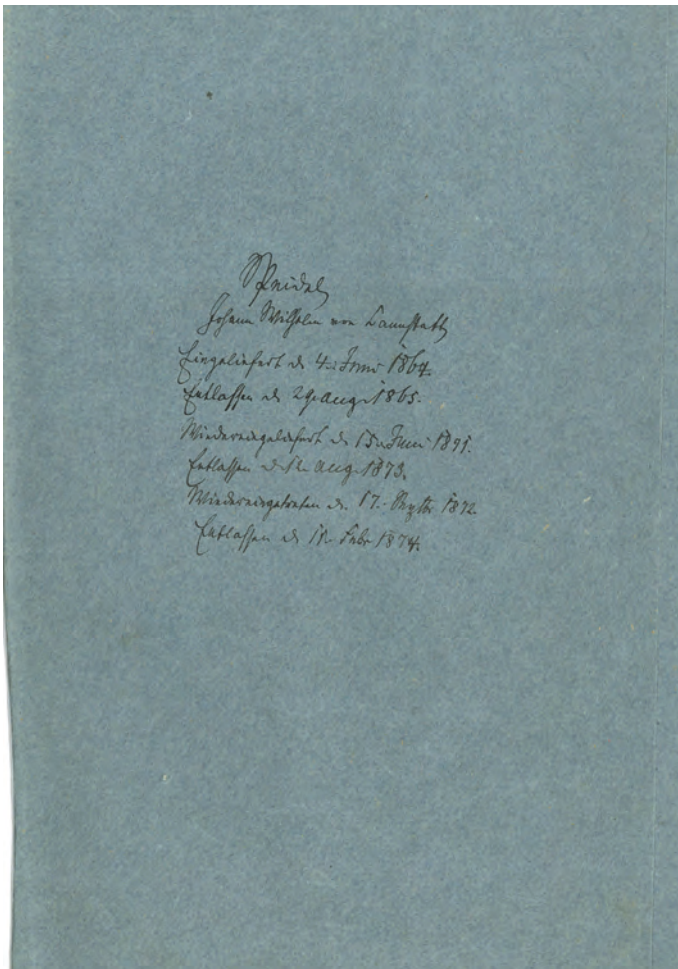 Speidel
Johann Wilhelm von Cannstatt
Eingeliefert d. 4. Juni 1864.
Entlassen d. 29. Aug. 1865.
Wiedereingeliefert d. 15. Juni 1871.
Entlassen d. 12. Aug. 1873.
Wiedereingetreten d. 17. Septbr 1872.
Entlassen d. 18. Febr 1874.